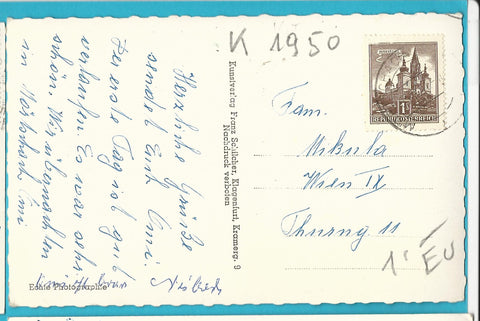 K 1950
Herzliche Grüße
sendet Euch Omi.
Der erste Tag ist gut
verlaufen. Es war sehr
schön. Wir übernachten
in
Echte Photographie
Kunstverlag Franz Schilcher, Klagenfurt, Kramerg. 9
Nachdruck verboten
1S
REPUBLIK ÖSTERREICH
Fam.
Mikula
Wien IX
Thurng 11
1'- EU